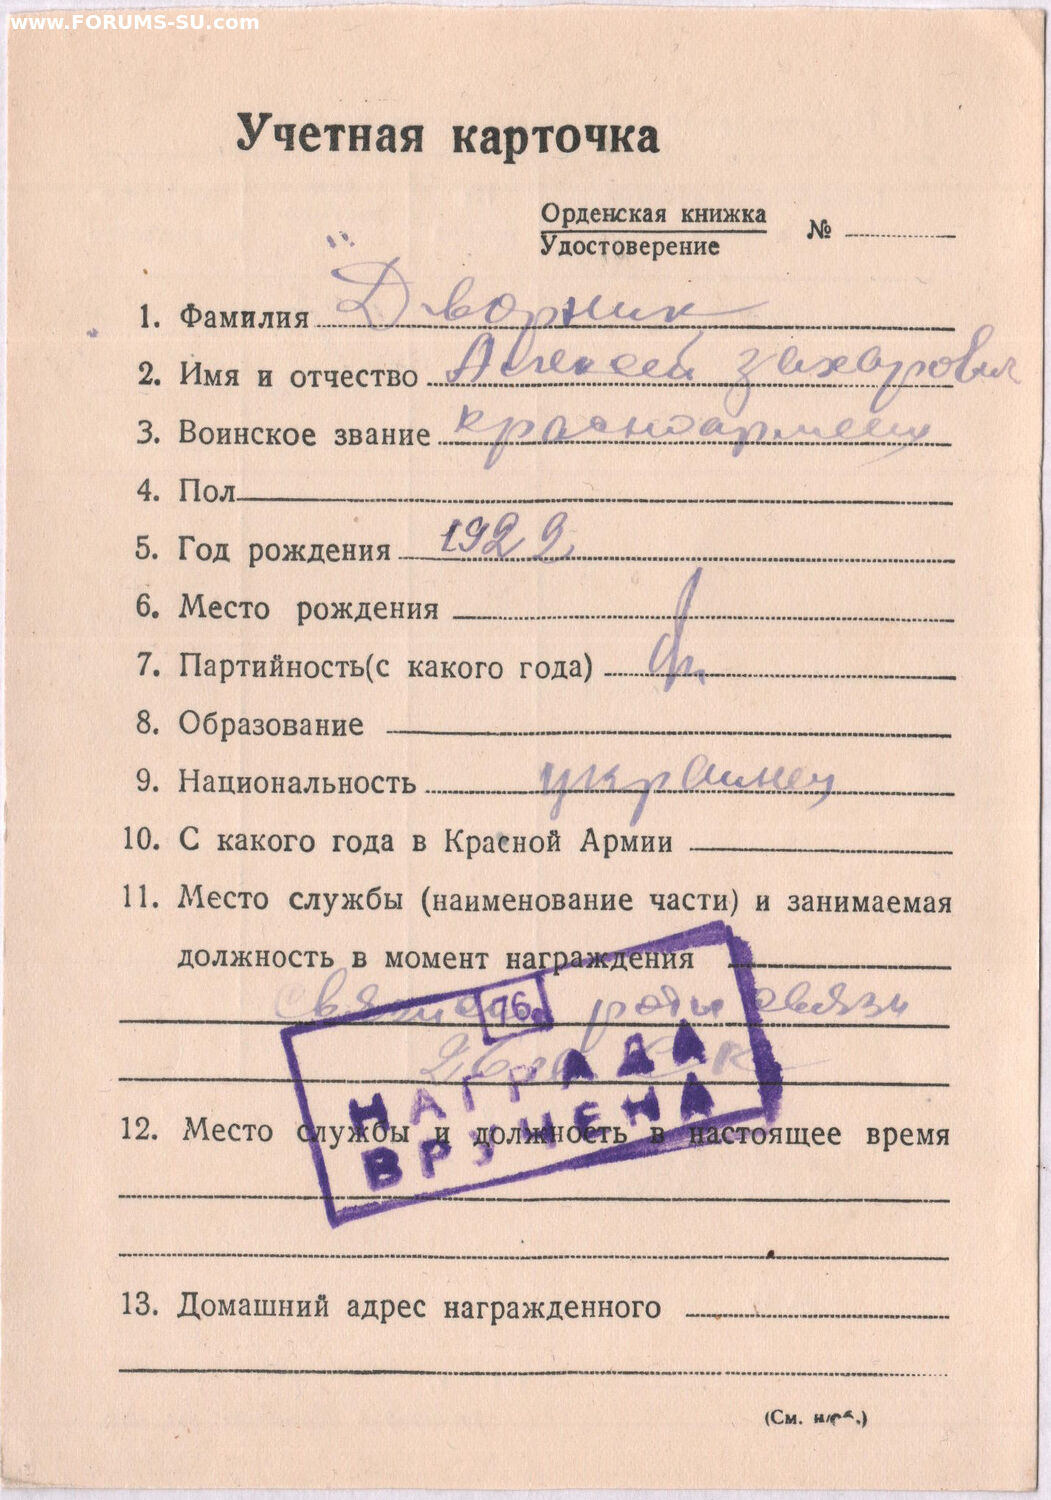 www.FORUMS-SU.com
Учетная карточка
Орденская книжка
Удостоверение
№
1. Фамилия Дворник
2. Имя и отчество Алексей Захарович
3. Воинское звание красноармеец
4. Пол
5. Год рождения 1922
6. Место рождения
7. Партийность(с какого года)
8. Образование
9. Национальность украинец
10. С какого года в Красной Армии
11. Место службы (наименование части) и занимаемая
должность в момент награждения
роты связи
76
НАГРАДА
ВРУЧЕНА
12. Место службы и должность в настоящее время
13. Домашний адрес награжденного
(См. н/об.)